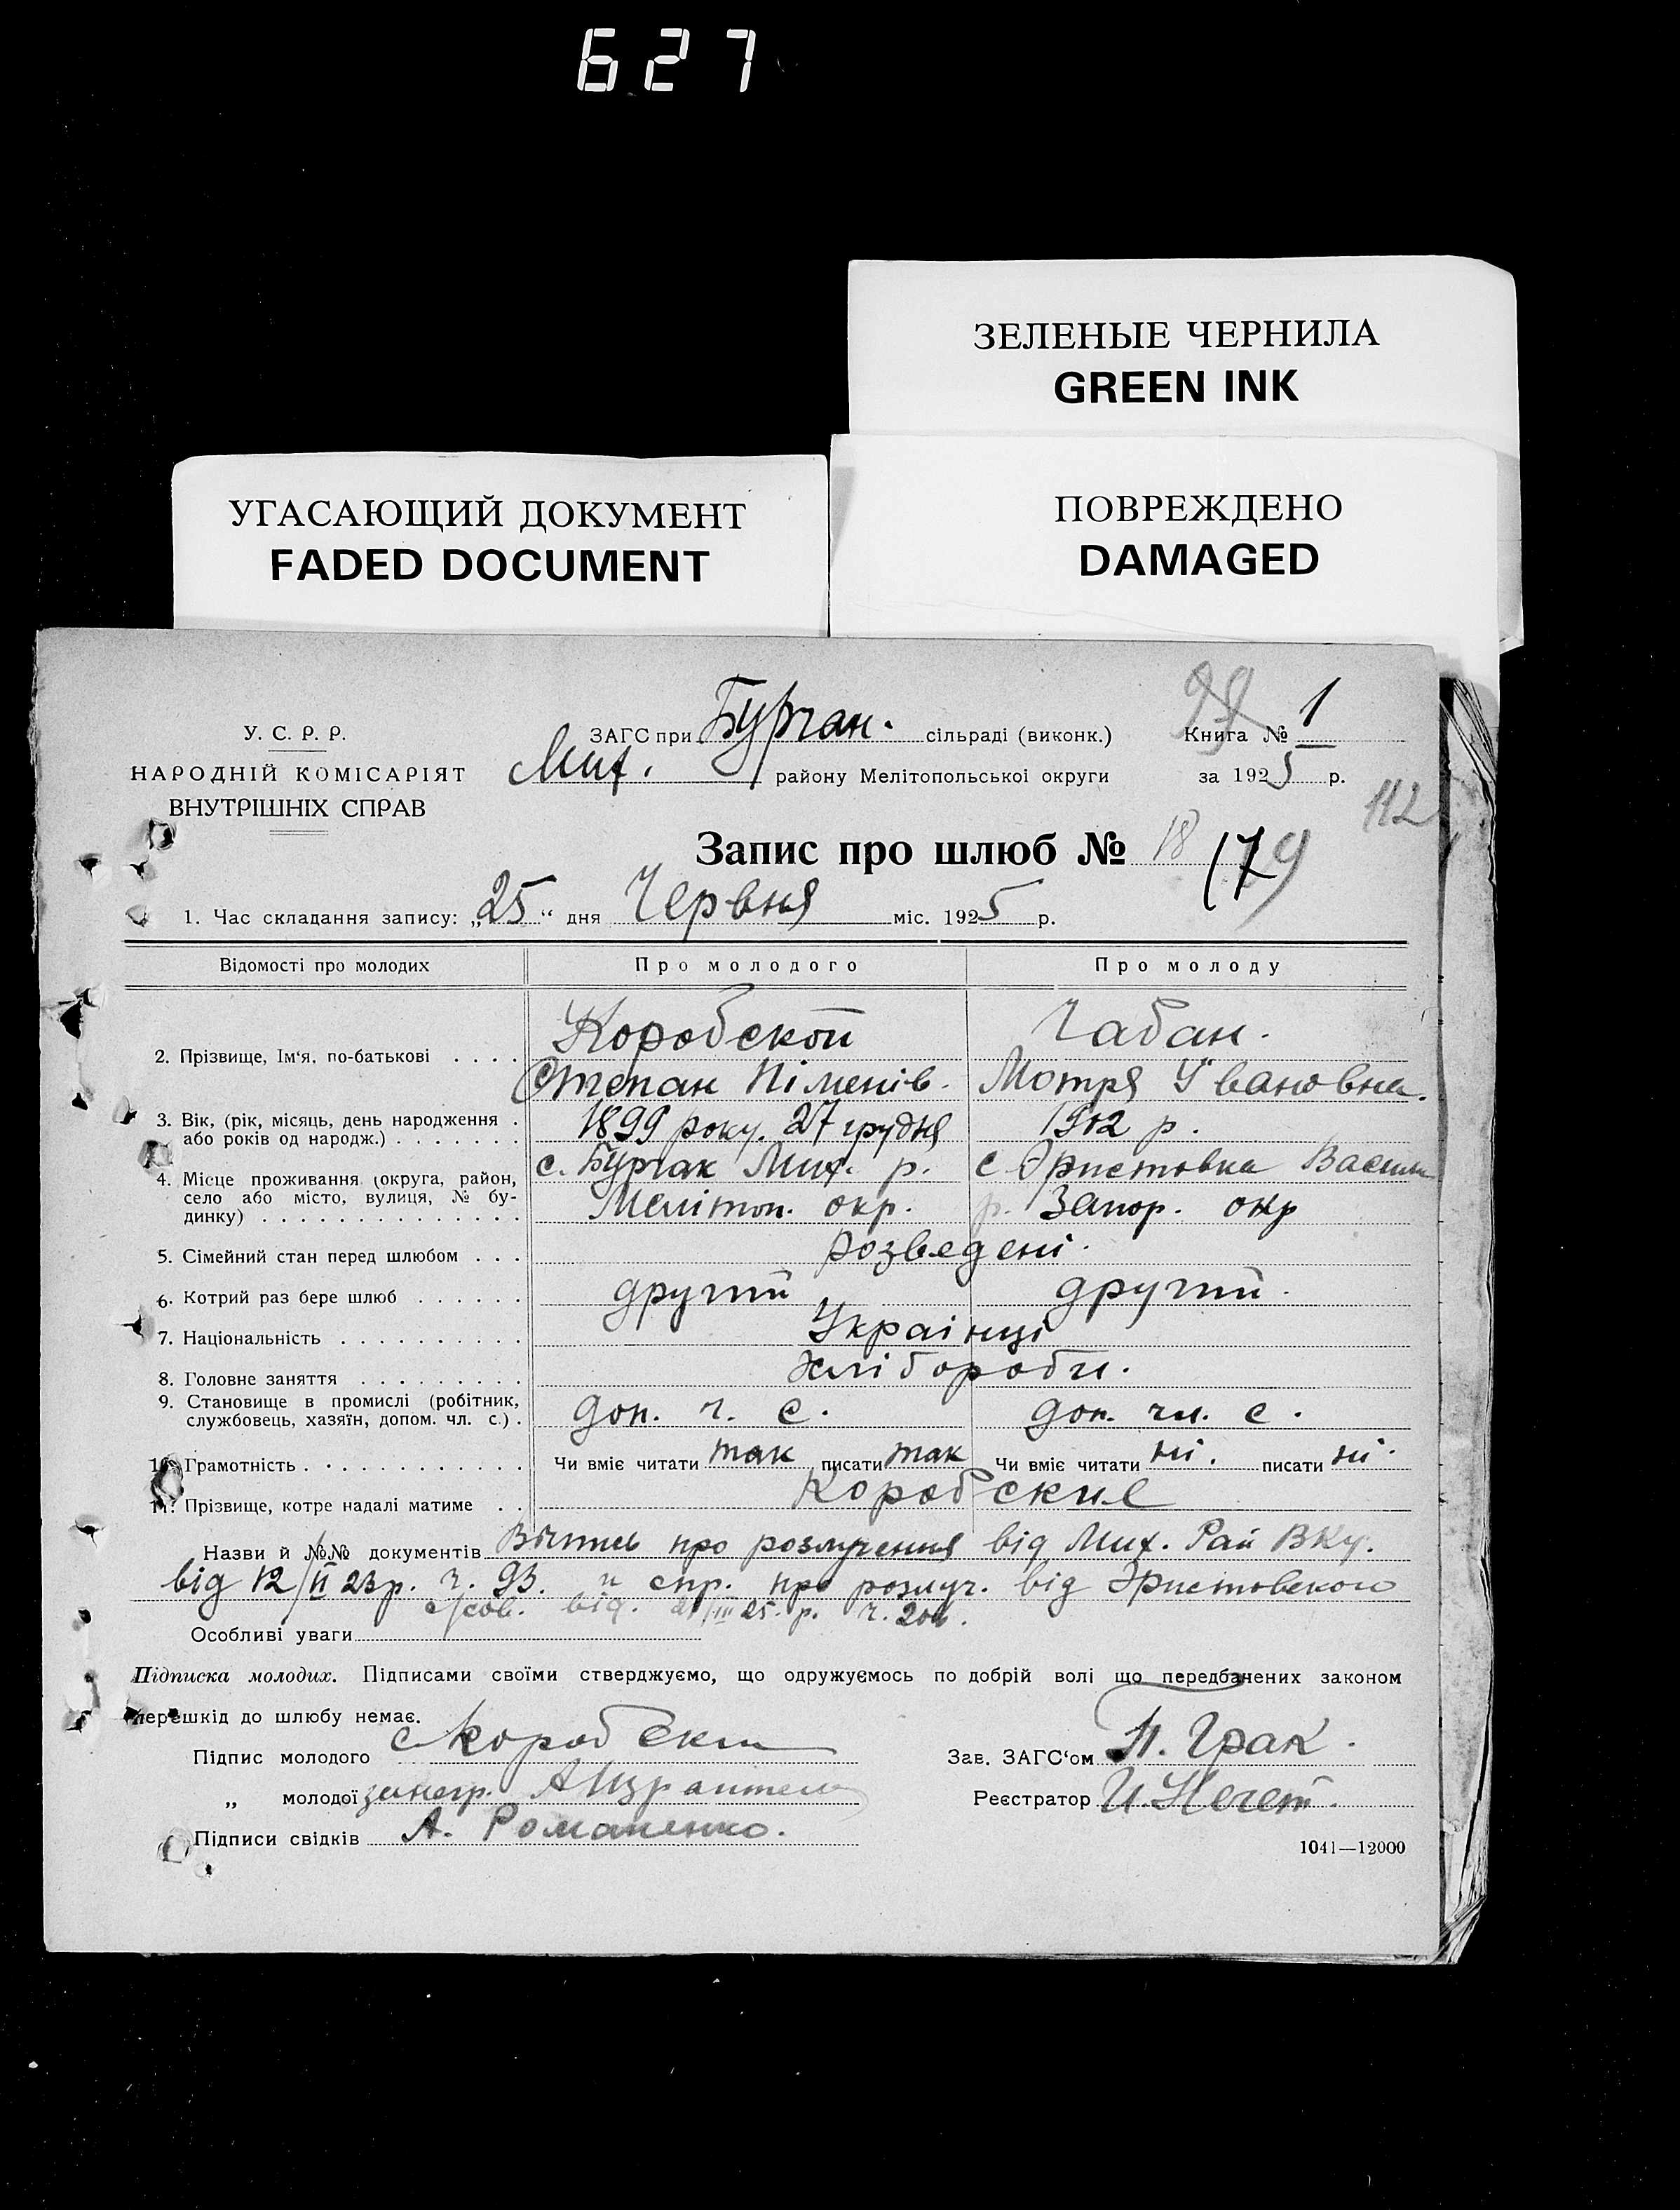 627
ЗЕЛЕНЫЕ ЧЕРНИЛА
GREEN INK
УГАСАЮЩИЙ ДОКУМЕНТ
FADED DOCUMENT
ПОВРЕЖДЕНО
DAMAGED
У. С. Р. Р.
НАРОДНІЙ КОМІСАРІЯТ
ВНУТРІШНІХ СПРАВ
ЗАГС при Бурчак. сільраді (виконк.)
Мих. району Мелітопольської округи
Книга № 1
за 1925 р.
112
Запис про шлюб № 18 179
1. Час складання запису: „25“ дня Червня міс. 1925 р.
Відомості про молодих Про молодого Про молоду
2. Прізвище, Ім‘я, по-батькові . . . . Коробской Чабан.
Степан Піменів. Мотря Івановна.
3. Вік, (рік, місяць, день народження . або років од народж.) . . . . . . . 1899 року. 27 грудня 1902 р.
с. Бурчак Мих. р. с. Эристовка Васили
4. Місце проживання (округа, район, село або місто, вулиця, № будинку) . . . . . . . . . . . . . . Меліт оп. окр. р. Запор. окр
5. Сімейний стан перед шлюбом . . . розведені.
6. Котрий раз бере шлюб . . . . . . другий другий.
7. Національність . . . . . . . . . . Українці
8. Головне заняття . . . . . . . . . хлібороби.
9. Становище в промислі (робітник, службовець, хазяїн, допом. чл. с.) . доп. ч. с. доп. чл. с.
10. Грамотність . . . . . . . . . . . . Чи вміє читати так писати так Чи вміє читати ні. писати ні.
11. Прізвище, котре надалі матиме . . Коробские
Назви й №№ документів про розлучення від Мих. Рай ВКу.
від 12/II 23 р. ч. 93. и спр. про розлуч. від Эристовского
с/сов. від. 25. р. ч.
Особливі уваги
Підписка молодих. Підписами своїми стверджуємо, що одружуємось по добрій волі що передбачених законом
перешкід до шлюбу немає.
Підпис молодого с Коробски
„ молодої
Підписи свідків А. Романенко.
Зав. ЗАГС‘ом П. Грак.
Реєстратор
1041—12000